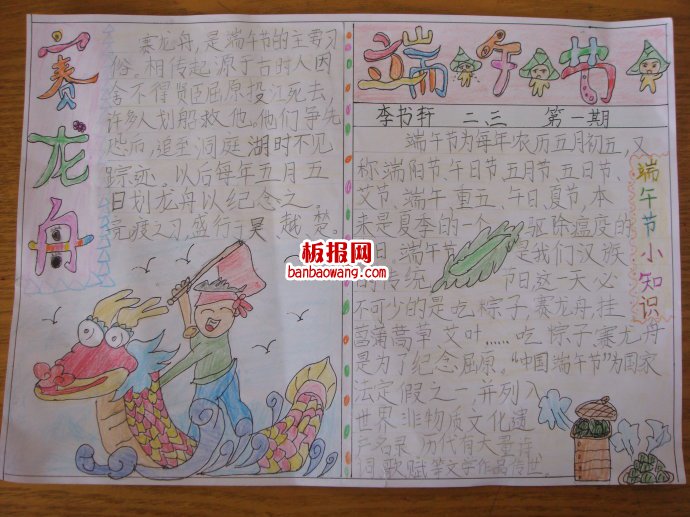 赛龙舟
赛龙舟，是端午节的主要习
俗。相传起源于古时人因
舍不得贤臣屈原投江死去，
许多人划船救他。他们争先
恐后，追至洞庭湖时不见
踪迹。以后每年五月五
日划龙舟以纪念之。
竞渡之习，盛行于吴、越、楚。
端午节
李书轩 二、三 第一期
端午节为每年农历五月初五，又
称端阳节、午日节、五月节、五日节、
艾节、端午、重五、午日、夏节，本
来是夏季的一个 驱除瘟疫的
日，端午节 是我们汉族
的传统 节日，这一天必
不可少的是吃粽子，赛龙舟，挂
菖蒲蒿草艾叶……吃粽子赛龙舟
是为了纪念屈原。“中国端午节”为国家
法定假之一并列入
世界非物质文化遗
名录 历代有大量诗
词歌赋等文学作品传世。
端午节小知识
板报网
banbaowang.com